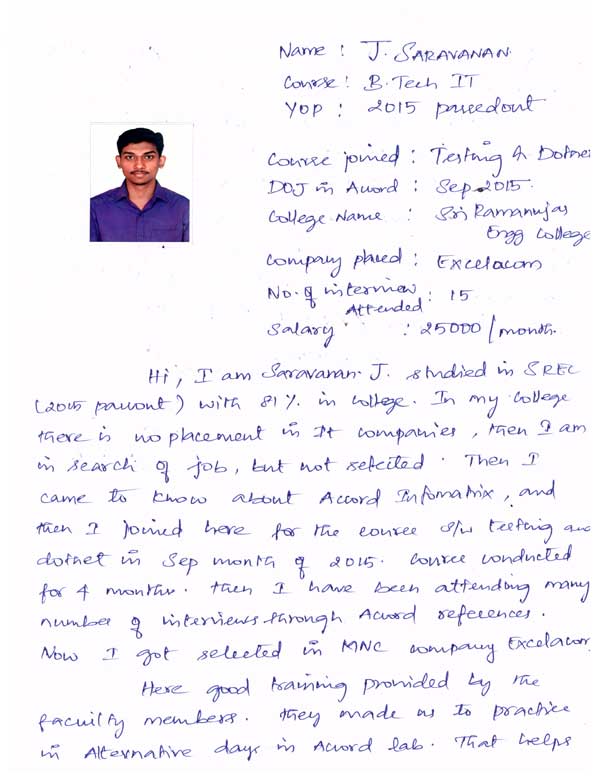 Name : J. SARAVANAN
Course : B.Tech IT
YOP : 2015 passedout
Course joined : Testing & Dotne
DOJ in Accord : Sep 2015.
College Name : Sri Ramanujar
Engg College
Company placed : Excelacom
No. of interview
Attended : 15
Salary : 25000 / month.
Hi, I am Saravanan. J. studied in SREC
(2015 passout) with 81% in college. In my college
there is no placement in It companies, then I am
in search of job, but not selected. Then I
came to know about Accord Infomatrix, and
then I joined here for the course s/w testing and
dotnet in Sep month of 2015. Course conducted
for 4 months. then I have been attending many
number of interviews through Accord references.
Now I got selected in MNC company Excelacom
Here good training provided by the
faculity members. they made us to practice
in Alternative days in Accord lab. That helps